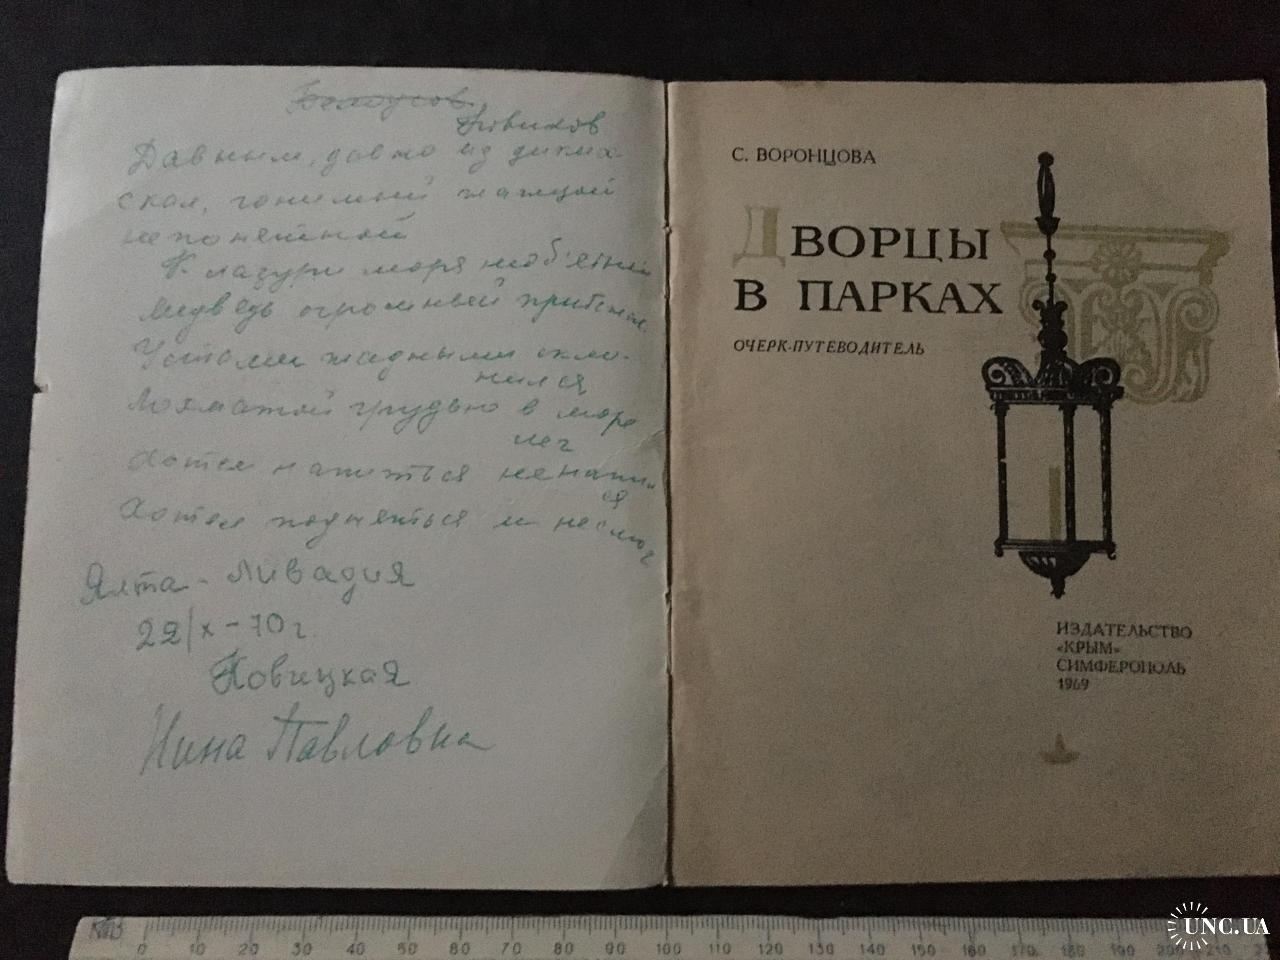 Белоусов
Новиков
Давным, давно из диких
скал, гонимый жаждой
непонятной
К лазури моря необ'ятной
Медведь огромный прибежал.
Устами жадными скло-
нился
Лохматой грудью в море
лег
Хотел напиться ненапил
ся
Хотел подняться и несмог
Ялта - Ливадия
22/х-70г.
Новицкая
Нина Павловна
С. ВОРОНЦОВА
ДВОРЦЫ
В ПАРКАХ
ОЧЕРК-ПУТЕВОДИТЕЛЬ
ИЗДАТЕЛЬСТВО
«КРЫМ»
СИМФЕРОПОЛЬ
1969
0 10 20 30 40 50 60 70 80 90 100 110 120 130 140 150 160 170 180 190 200 210
UNC.UA